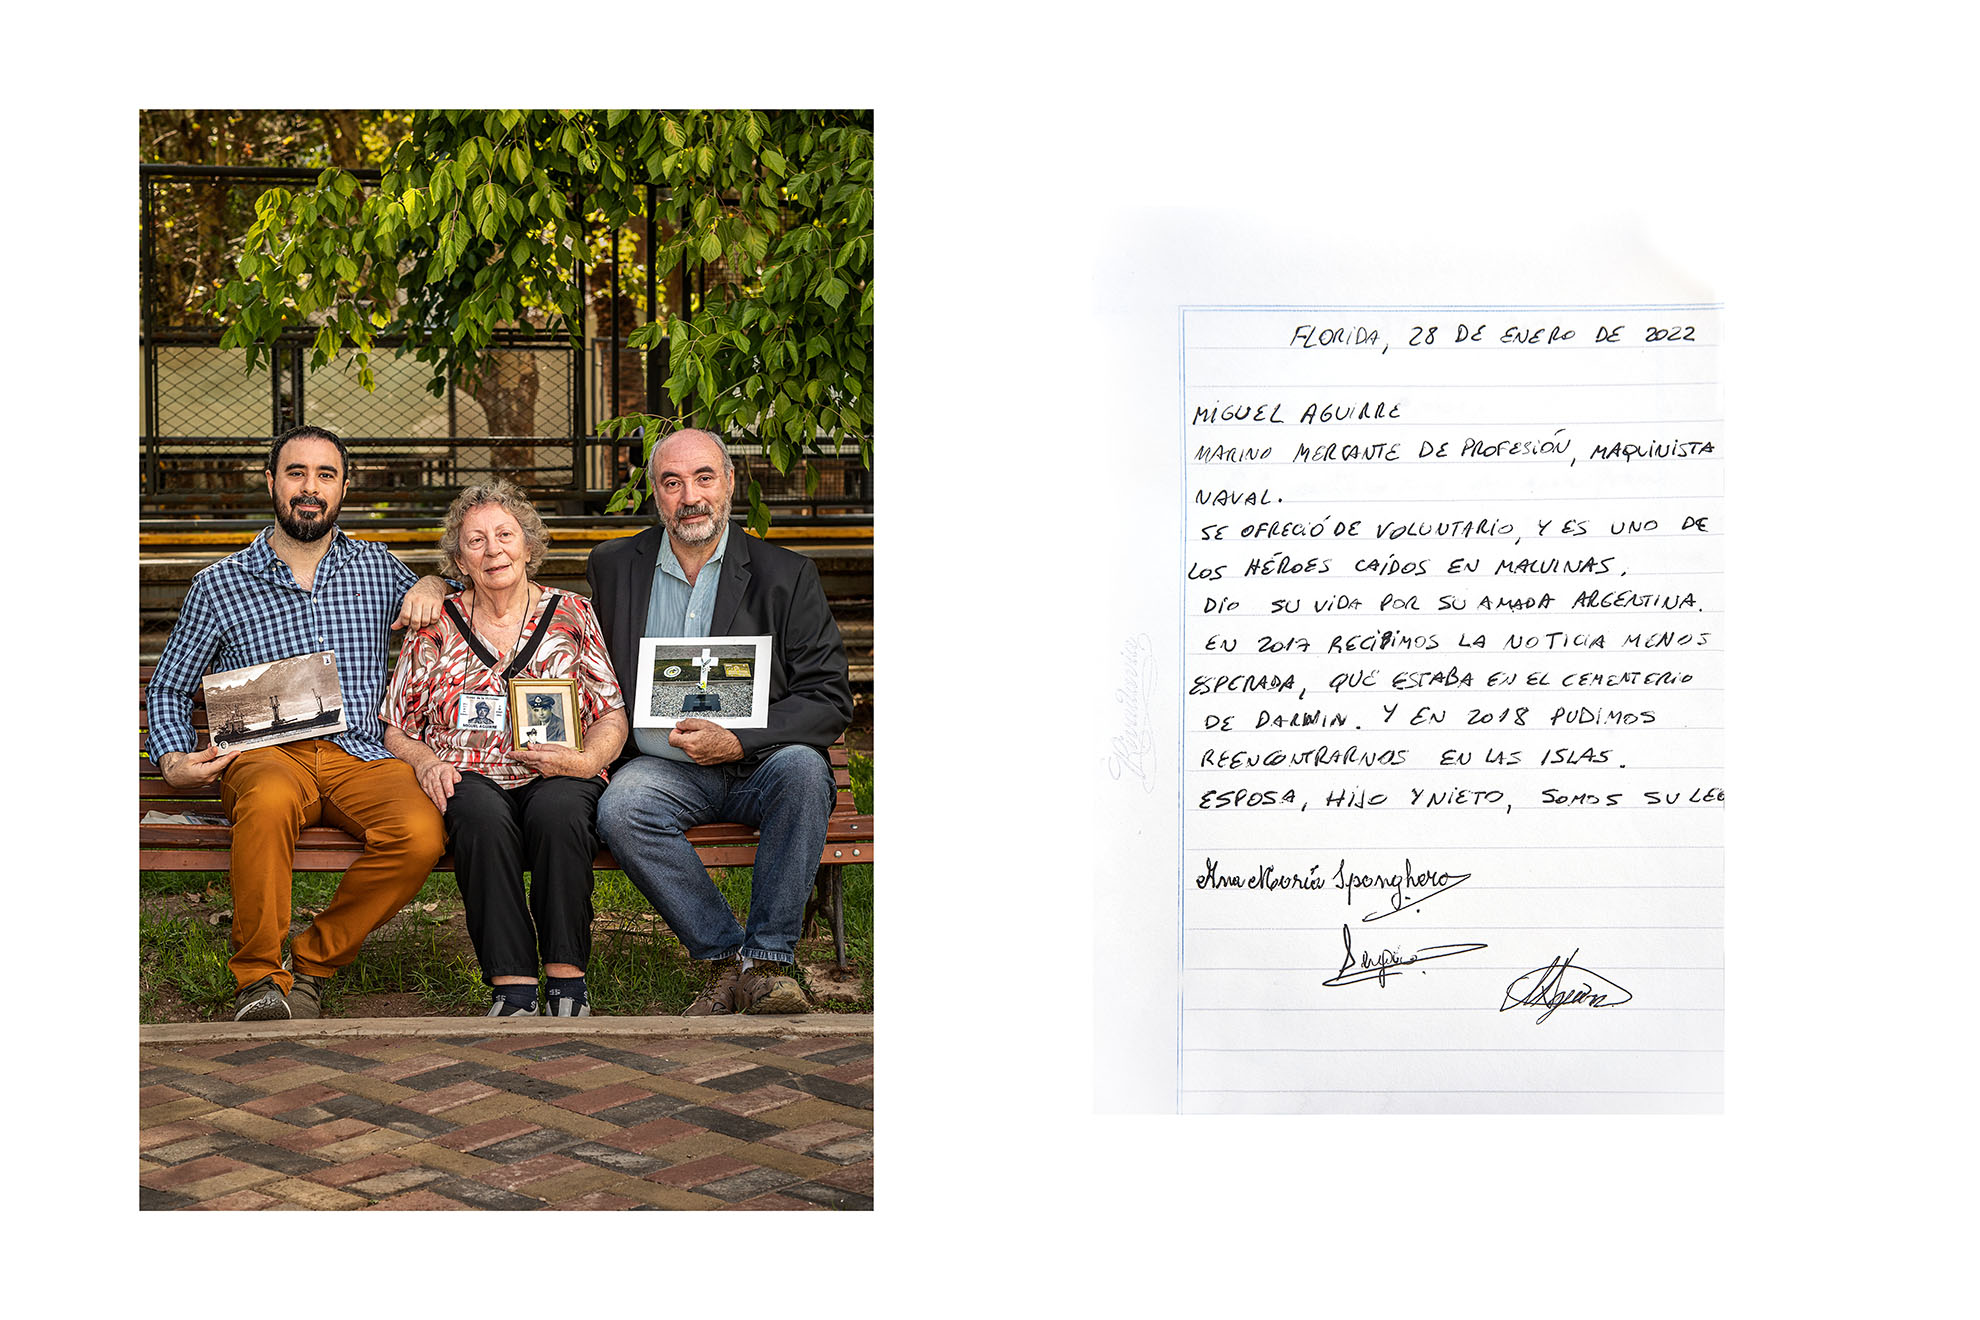 MIGUEL AGUIRRE
FLORIDA, 28 DE ENERO DE 2022
MIGUEL AGUIRRE
MARINO MERCANTE DE PROFESIÓN, MAQUINISTA
NAVAL.
SE OFRECIÓ DE VOLUNTARIO, Y ES UNO DE
LOS HÉROES CAÍDOS EN MALVINAS.
DIO SU VIDA POR SU AMADA ARGENTINA.
EN 2017 RECIBIMOS LA NOTICIA MENOS
ESPERADA, QUE ESTABA EN EL CEMENTERIO
DE DARWIN. Y EN 2018 PUDIMOS
REENCONTRARNOS EN LAS ISLAS.
ESPOSA, HIJO Y NIETO, SOMOS SU LEG
Ana María Sponghero
Rivadavia